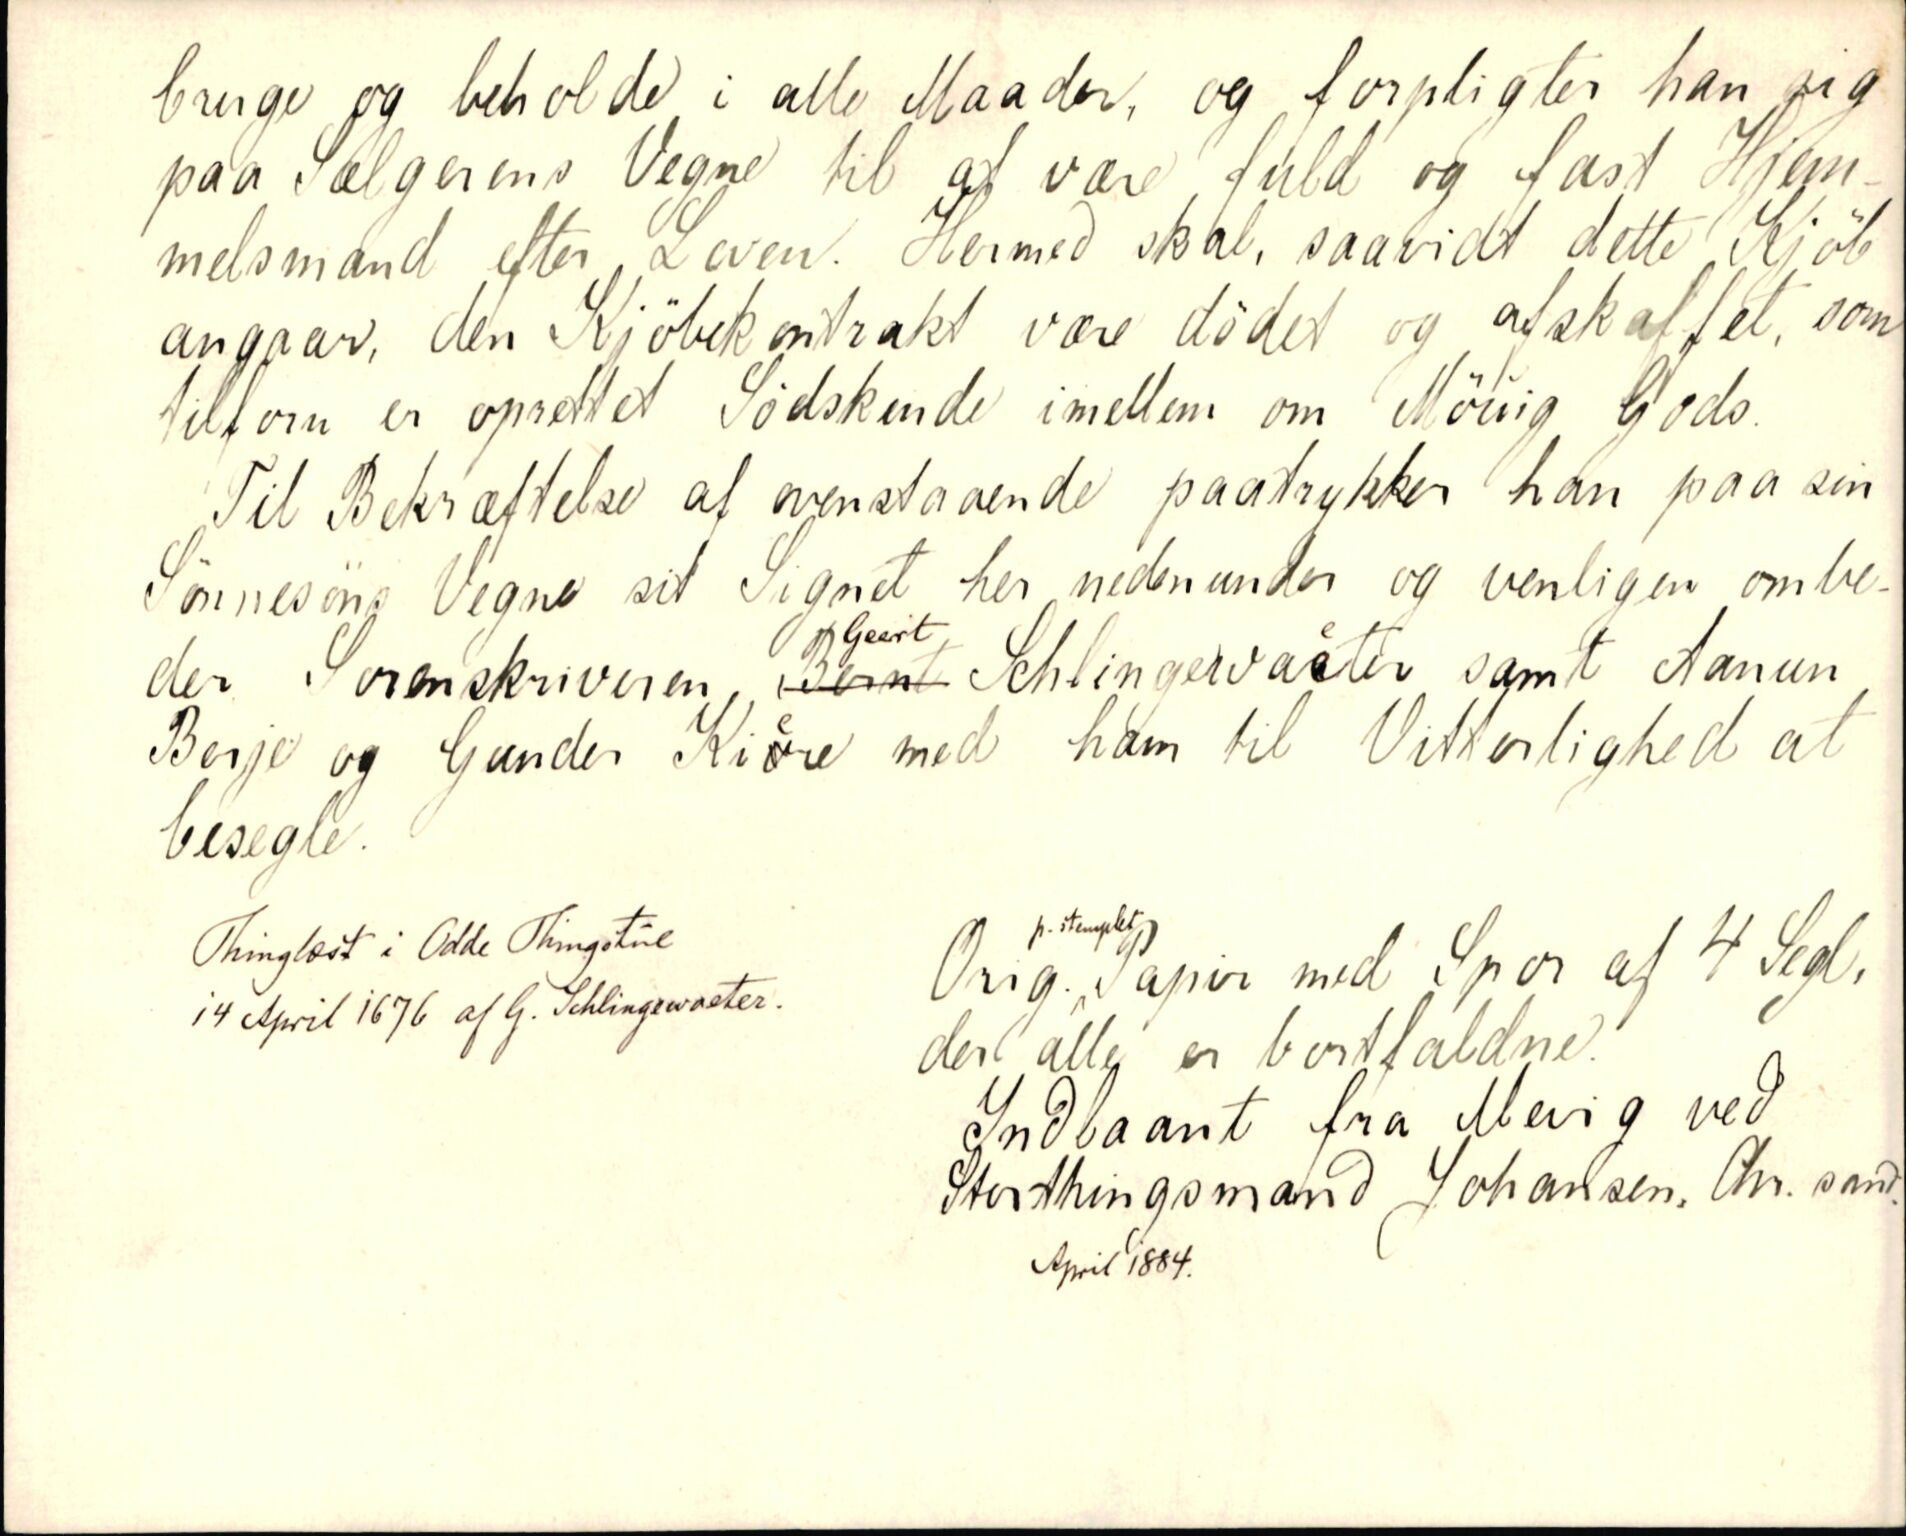 bruge og beholde i alle Maader, og forpligter han sig
paa Sælgerens Vegne til at være fuld og fast Hjem-
melsmand efter Loven. Hermed skal, saavidt dette Kjöb
angaar, den Kjöbekontrakt være dödet og afskaffet, som
tilforn er oprettet Södskende imellem om Möüig Gods.
Til Bekræftelse af ovenstaaende paatrykker han paa sin
Sönnesöns Vegne sit Signet her nedenunder og venligen ombe-
der Sorenskriveren, Geert Schlingervaeter samt Aanun
Berje og Gunder Kiere med ham til Vitterlighed at
besegle.
Thinglæst i Odde Thingstue
14 April 1676 af G. Schlingewaeter.
Orig. p. stemplet Papir med Spor af 4 Segl,
der alle er bortfaldne.
Indlaant fra Mevig ved
Storthingsmand Johansen. Chr. sand.
April 1884.